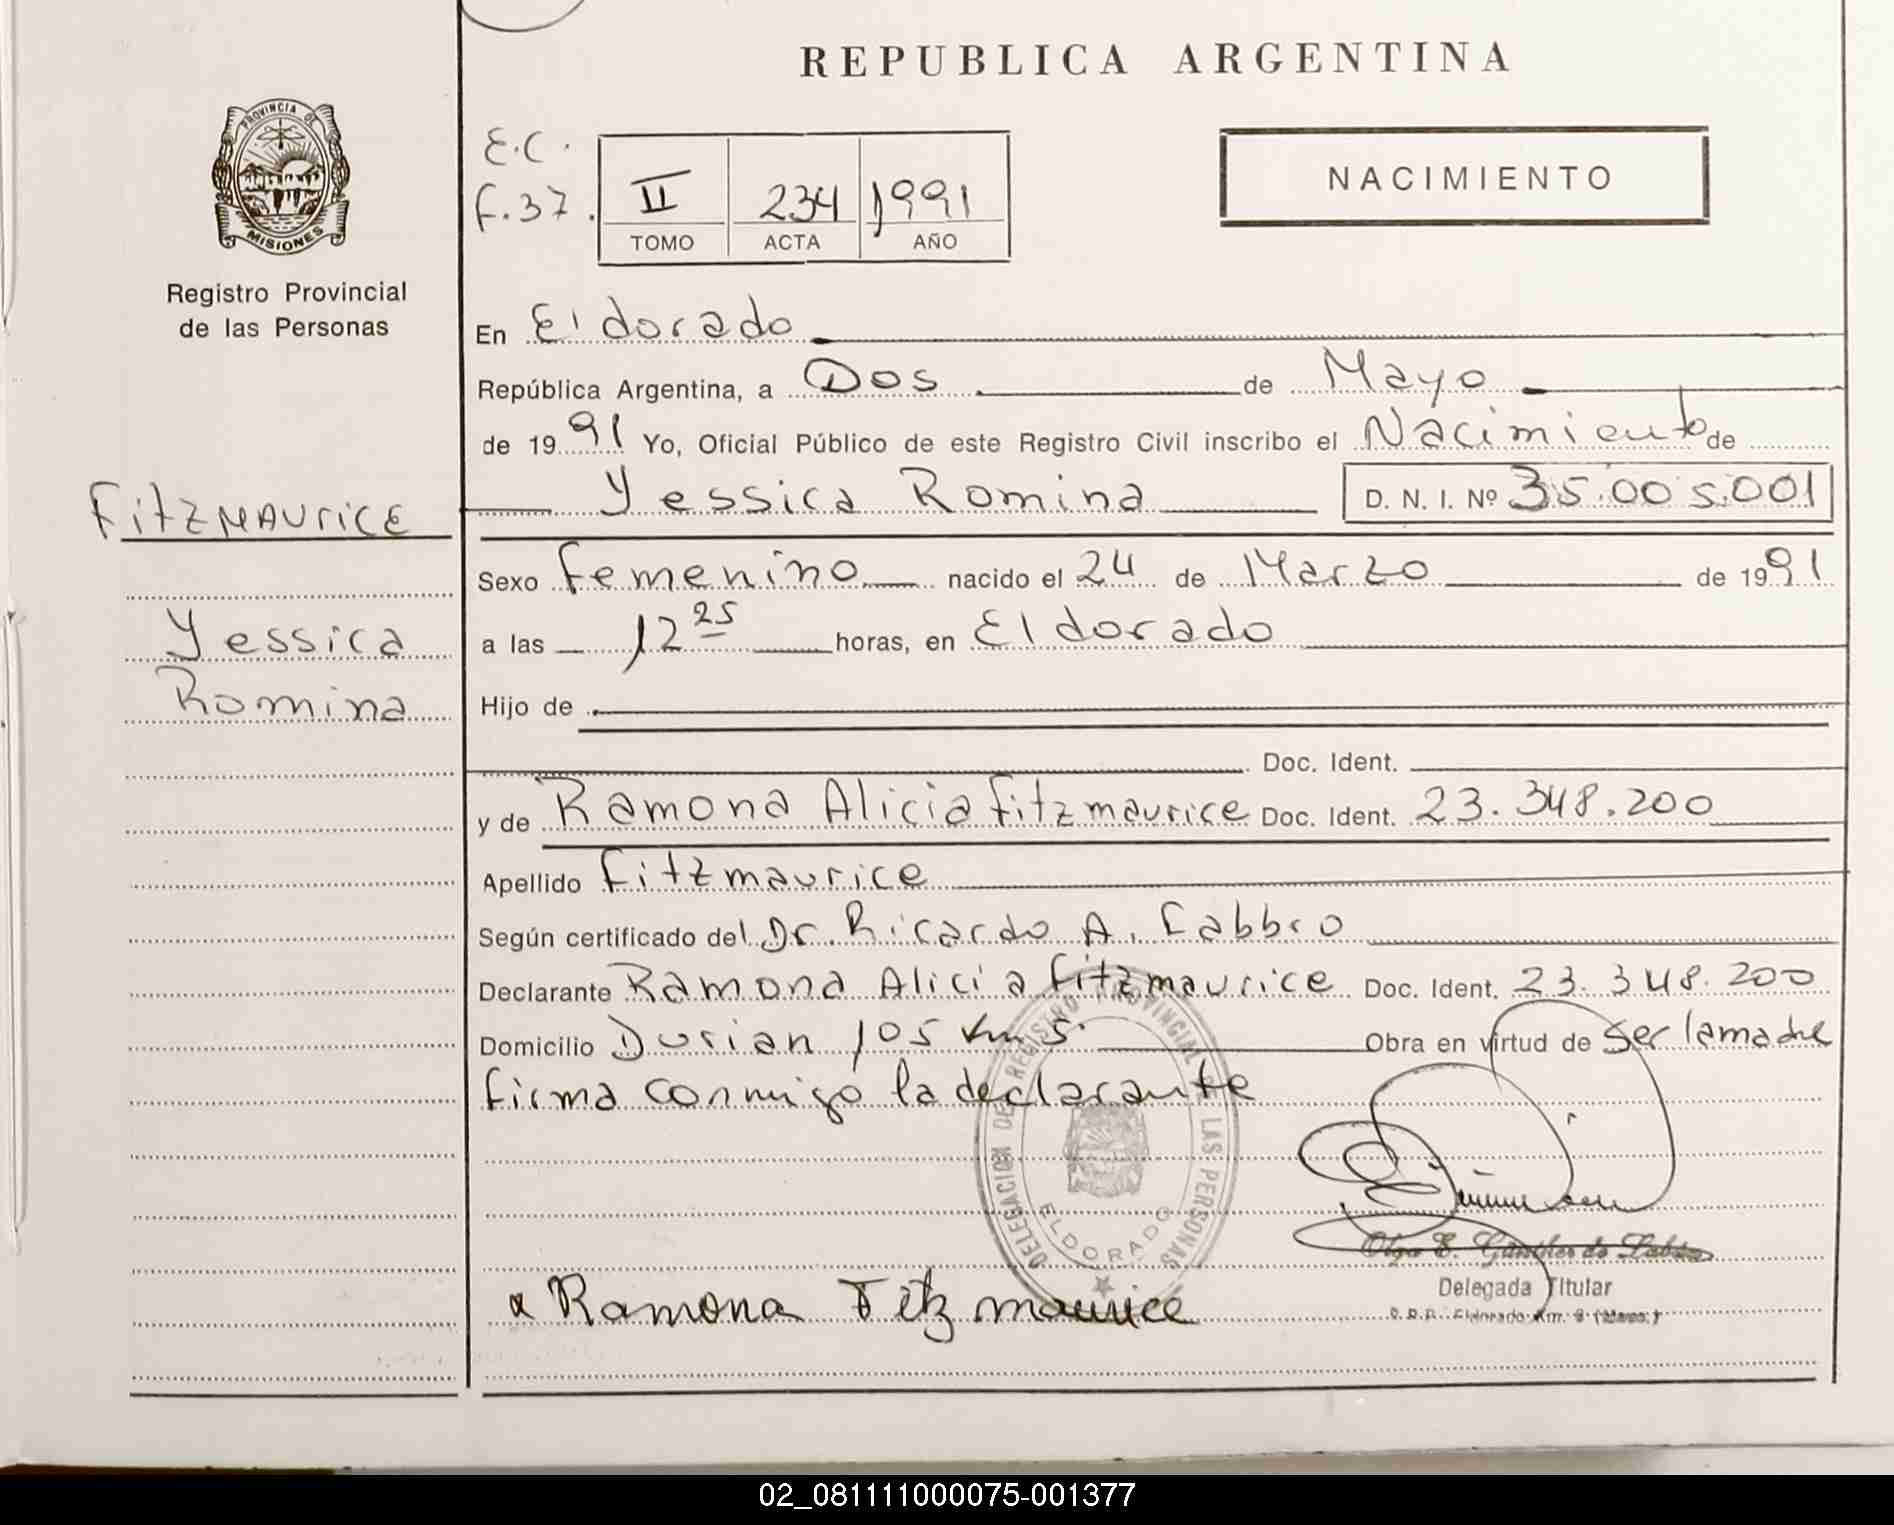 REPUBLICA ARGENTINA
PROVINCIA DE
MISIONES
Registro Provincial
de las Personas
E.C.
F.37.
II 234 1991
TOMO ACTA AÑO
NACIMIENTO
En Eldorado
República Argentina, a Dos de Mayo
de 1991 Yo, Oficial Público de este Registro Civil inscribo el Nacimiento de
Yessica Romina D. N. I. Nº 35.005.001
FitzMAUricE
Yessica
Romina
Sexo Femenino nacido el 24 de Marzo de 1991
a las 12 25 horas, en Eldorado
Hijo de
Doc. Ident.
y de Ramona Alicia Fitzmaurice Doc. Ident. 23.348.200
Apellido Fitzmaurice
Según certificado del Dr. Ricardo A. Fabbro
Declarante Ramona Alicia Fitzmaurice Doc. Ident. 23.348.200
Domicilio Durian 105 Km 5. Obra en virtud de Ser la madre
firma conmigo la declarante
DELEGACION DE REGISTRO PROVINCIAL DE LAS PERSONAS
ELDORADO
Olga E. Günther de
Delegada Titular
Eldorado Km. 9
Ramona Fitzmaurice
02_081111000075-001377